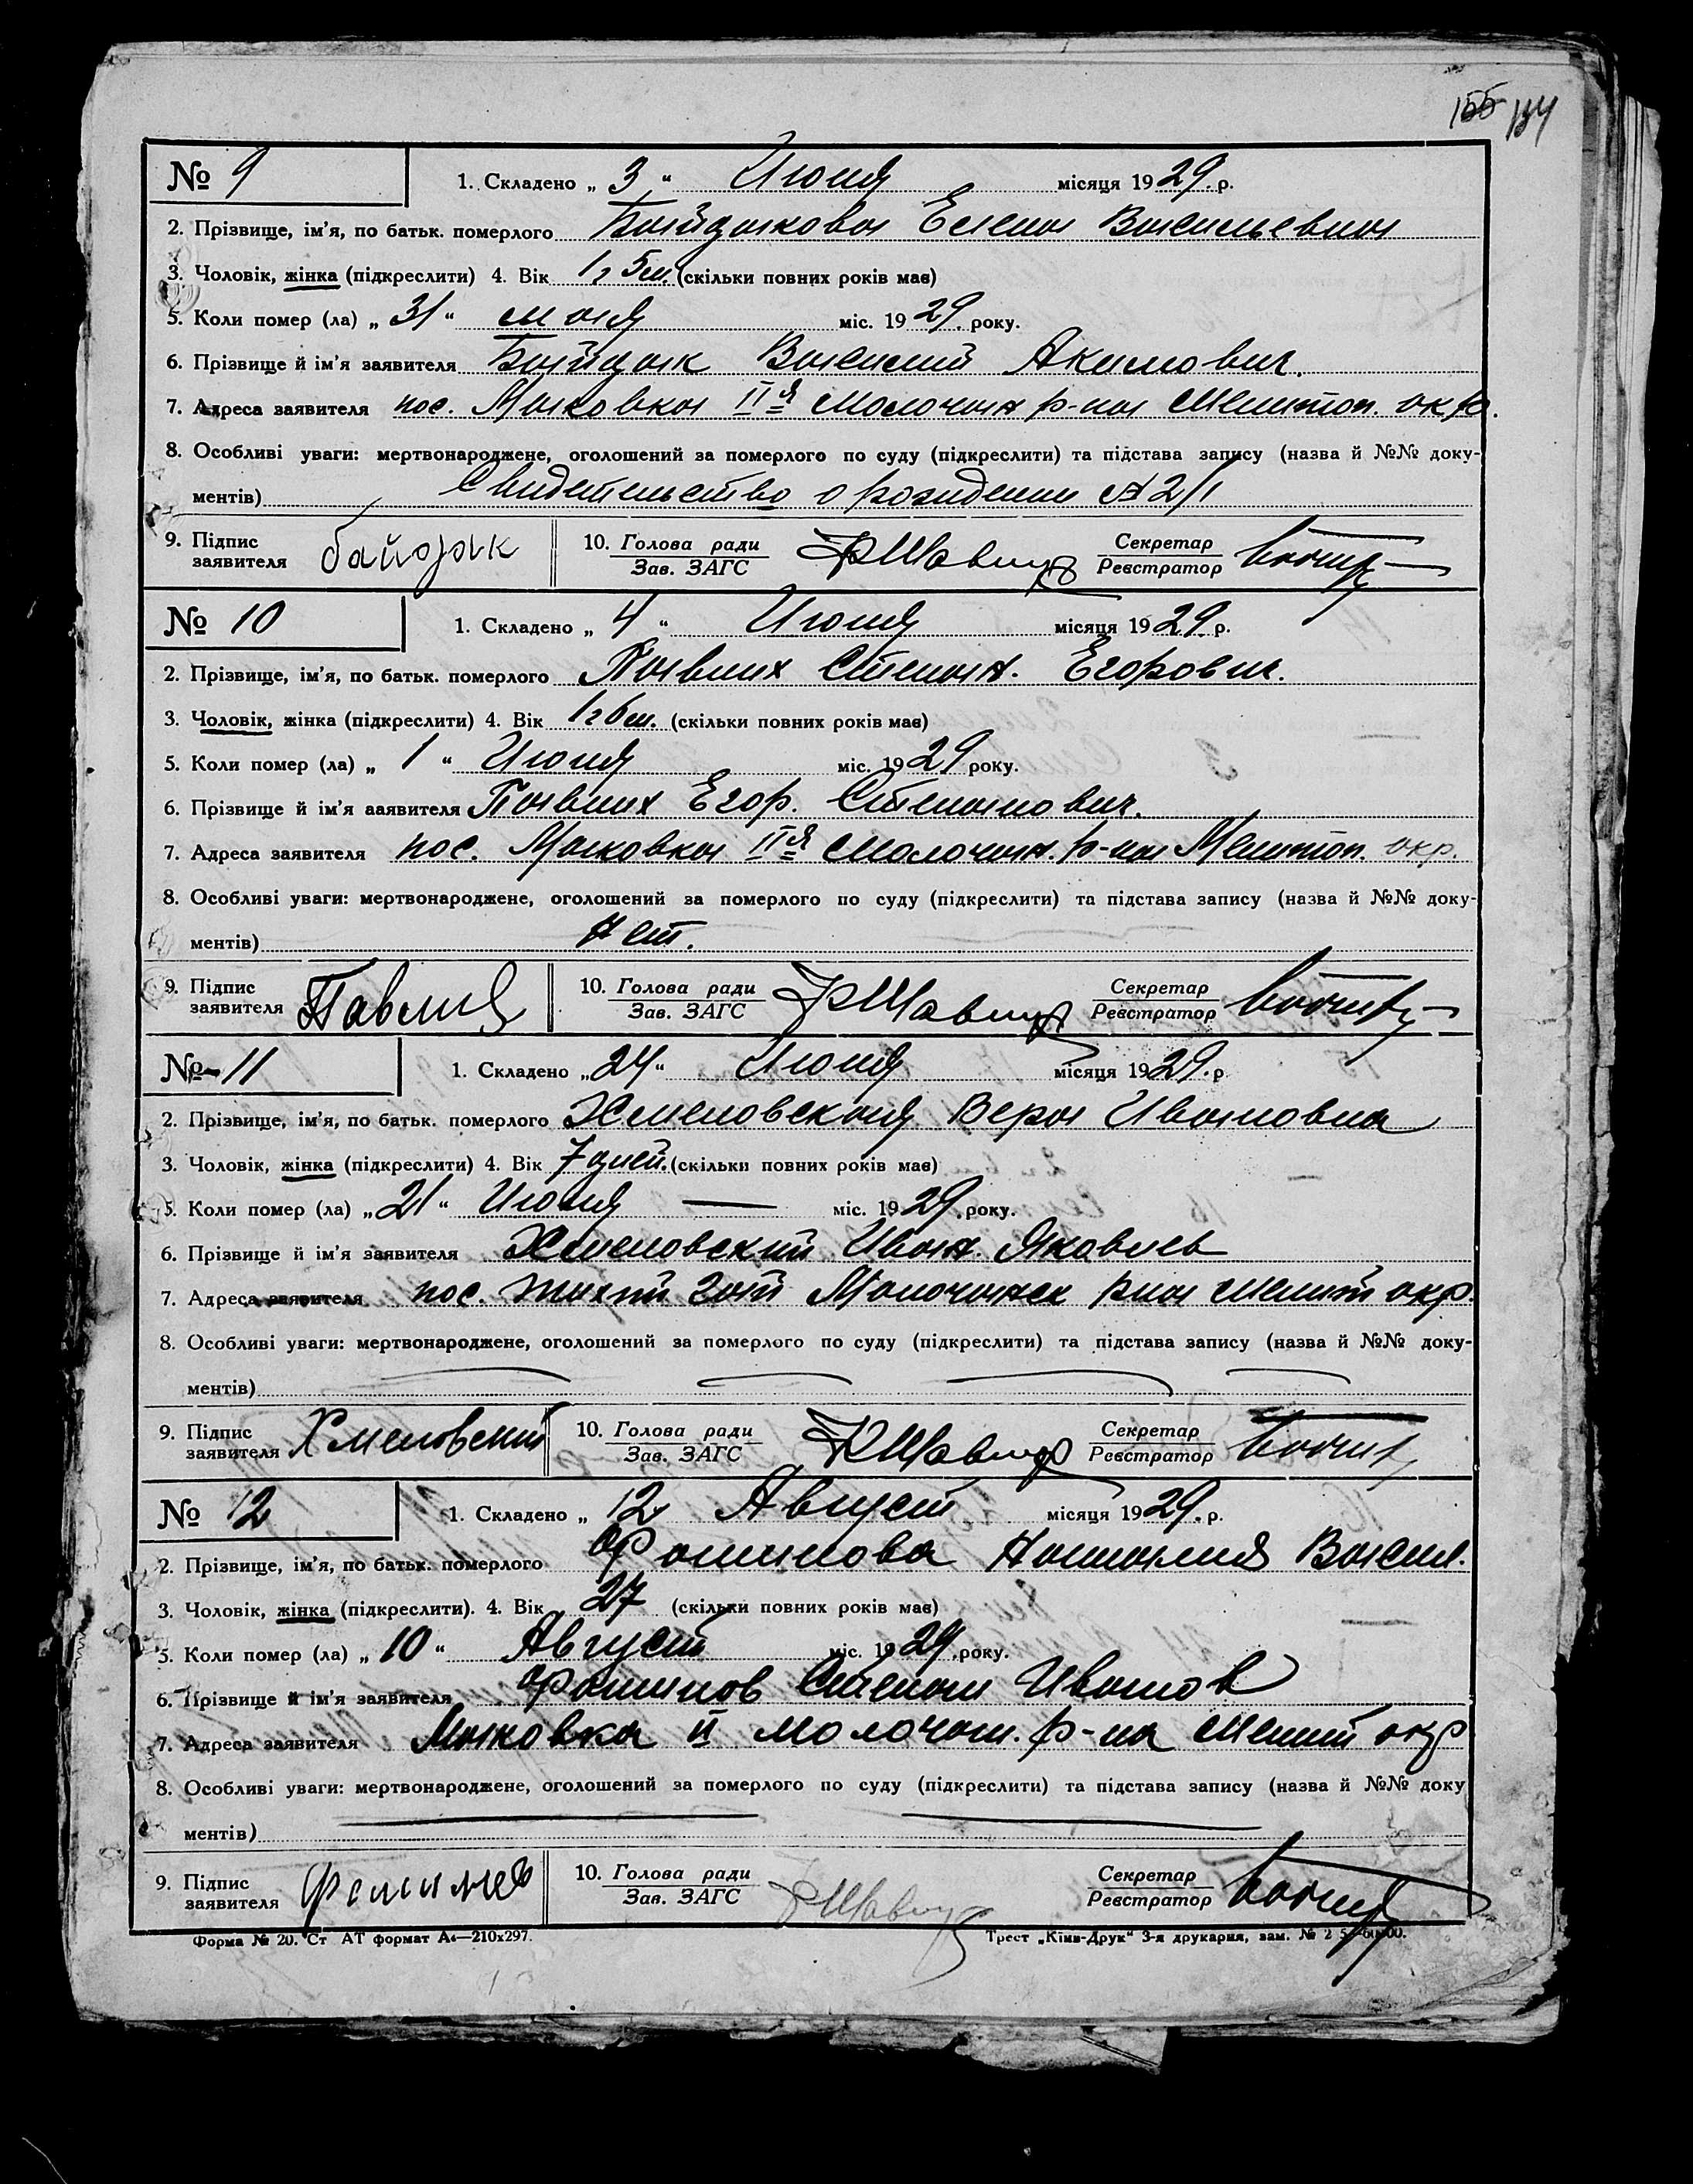 155 154
№ 9 1. Складено „ 3 “ Июня місяця 1929. р.
2. Прізвище, ім'я, по батьк. померлого Байдакова Елена Васильевна
3. Чоловік, жінка (підкреслити) 4. Вік 1 г 5 м. (скільки повних років має)
5. Коли помер (ла) „ 31 “ мая міс. 1929. року.
6. Прізвище й ім'я заявителя Байдак Василий Акимович.
7. Адреса заявителя пос. Маковка IIя Молочан р-на Мелитоп. окр.
8. Особливі уваги: мертвонароджене, оголошений за померлого по суду (підкреслити) та підстава запису (назва й №№ доку-
ментів) Свидетельство о рождении N 2/1
9. Підпис заявителя байдак 10. Голова ради Зав. ЗАГС Секретар Реєстратор
№ 10 1. Складено „ 4 “ Июня місяця 1929. р.
2. Прізвище, ім'я, по батьк. померлого Павлих Степан. Егорович.
3. Чоловік, жінка (підкреслити) 4. Вік 1 г 6 м. (скільки повних років має)
5. Коли помер (ла) „ 1 “ Июня міс. 1929 року.
6. Прізвище й ім'я ааявителя Павлих Егор. Степанович.
7. Адреса заявителя пос. Маковка IIя Молочан. р-на Мелитоп. окр.
8. Особливі уваги: мертвонароджене, оголошений за померлого по суду (підкреслити) та підстава запису (назва й №№ доку-
ментів) Нет.
9. Підпис заявителя 10. Голова ради Зав. ЗАГС Секретар Реєстратор
№ 11 1. Складено „ 24 “ Июня місяця 1929. р
2. Прізвище, ім'я, по батьк. померлого Хмеловская Вера Ивановна
3. Чоловік, жінка (підкреслити) 4. Вік 7 дней. (скільки повних років має)
5. Коли помер (ла) „ 21 “ Июня — міс. 1929. року.
6. Прізвище й ім'я заявителя Хмеловский Иван. Яковлев
7. Адреса заявителя пос. Тихий гай Молочанск рна Мелит окр.
8. Особливі уваги: мертвонароджене, оголошений за померлого по суду (підкреслити) та підстава запису (назва й №№ доку-
ментів)
9. Підпис заявителя Хмеловский 10. Голова ради Зав. ЗАГС Секретар Реєстратор
№ 12 1. Складено „ 12 Август місяця 1929. р.
2. Прізвище, ім'я, по батьк. померлого Наталия Васил.
3. Чоловік, жінка (підкреслити). 4. Вік 27 (скільки повних років має)
5. Коли помер (ла) „ 10 “ Август міс. 1929. року.
6. Прізвище й ім'я заявителя Степан Иванов
7. Адреса заявителя Маковка II Молочан. р-на Мелит окр
8. Особливі уваги: мертвонароджене, оголошений за померлого по суду (підкреслити) та підстава запису (назва й №№ доку
ментів)
9. Підпис заявителя 10. Голова ради Зав. ЗАГС Секретар Реєстратор
Форма № 20. Ст АТ формат А4—210х297. Трест „Київ-Друк“ 3-я друкарня, зам. №